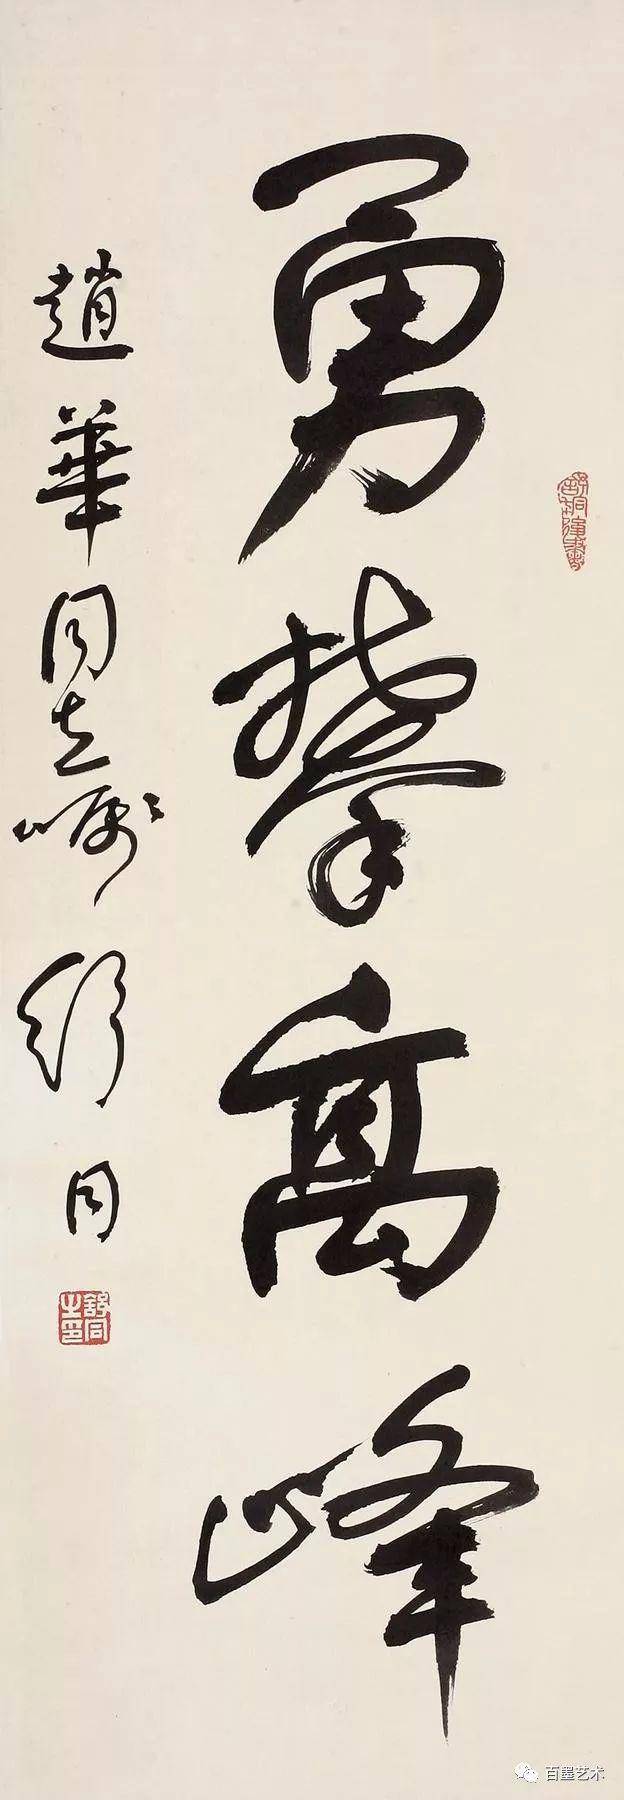 勇攀高峰
趙華同志嘱
舒同
舒同之印
百墨艺术